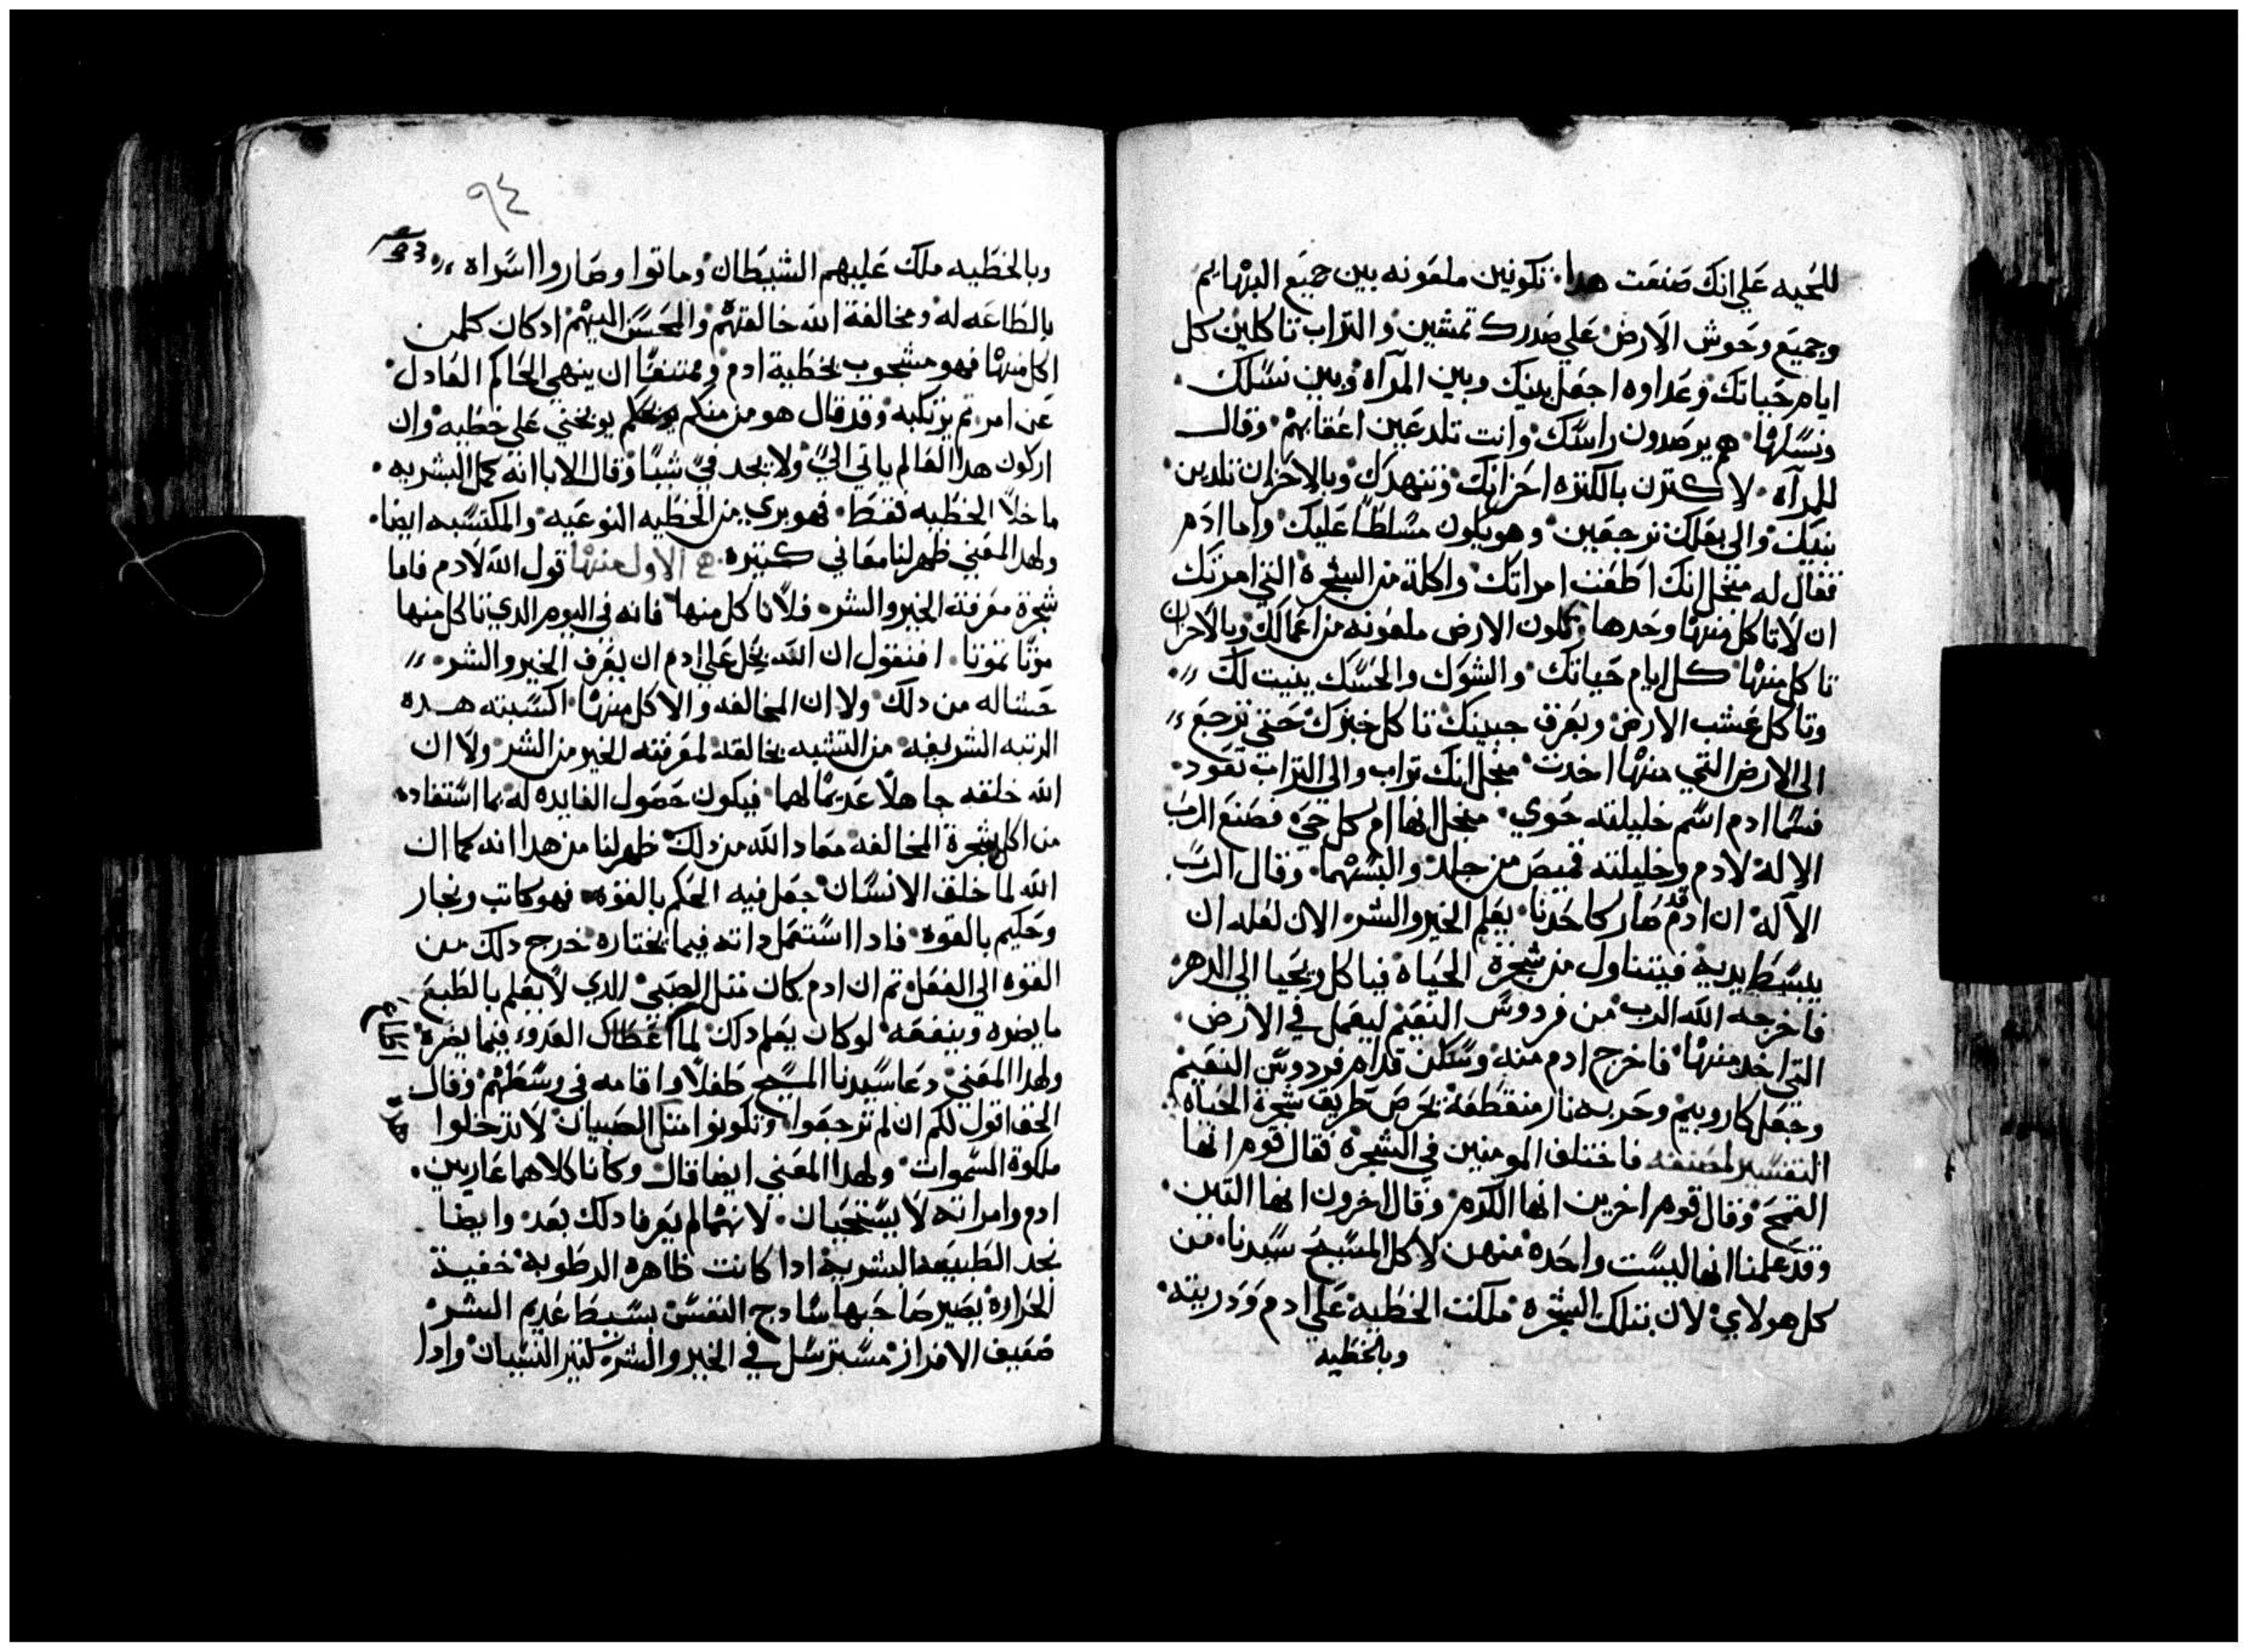 للحيه علي انك صنعت هدا تكونين ملعونه بين جميع البهايم
وجميع وحوش الارض علي صدرك تمشين والتراب تاكلين كل
ايام حياتك وعداوه اجعل بينك وبين المرآه وبين نسلك
ونسلها هم يرصدون راسك وانت تلدعين اعقابهم وقال
للمرآه لاكترن بالكتره احزانك وتنهدك وبالاحزان تلدين
بنيك والي بعلك ترجعين وهو يكون مسلطا عليك واما ادم
فقال له منجل انك اطعت امراتك واكلة من الشجره التي امرتك
ان لا تاكل منها وحدها تكون الارض ملعونه من اعمالك وبالاحزان
تاكل منها كل ايام حياتك والشوك والحسك ينبت لك
وتاكل عشب الارض وبعرق جبينك تاكل خبزك حتي ترجع
الي الارض التي منها اخدت منجل انك تراب والي التراب تعود
فسما ادم اسم خليلته حوي منجل انها ام كل حي فصنع الرب
الاله لادم وخليلته قميص من جلد والبسهما وقال الرب
الآله ان ادم قد صار كاحدنا يعلم الخير والشر الان لعله ان
يبسط يديه فيتناول من شجرة الحياه فياكل ويحيا الي الدهر
فاخرجه الله الرب من فردوس النعيم ليعمل في الارض
التي اخد منها فاخرج ادم منه وسكن قدام فردوس النعيم
وجعل كاروبيم وحربه نار منقطفة تحرص طريق شجرة الحياه
التفسير لمصنفه فاختلف المومنين في الشجره فقال قوم انها
القمح وقال قوم اخرين انها الكرم وقال اخرون انها التين
وقد علمنا انها ليست واحده منهن لاكل المسيح سيدنا من
كل هولاي لان بتلك الشجره ملكت الخطيه علي ادم ودريته
وبالخطيه
٩٤
وبالخطيه ملك عليهم الشيطان وماتوا وصاروا اسراه
بالطاعه له ومخالفة الله خالقهم والمحسن اليهم ادكان كلمن
اكل منها فهو مشجوب بخطية ادم وممتنعا ان ينهي الحاكم العادل
عن امر تم يرتكبه وقد قال هو من منكم يوبخني علي خطيه وان
اركون هدا العالم ياتي الي ولا يجد في شيا وقال الابا انه كمل البشريه
ما خلا الخطيه فقط فهو بري من الخطيه النوعيه والمكتسبه ايضا
ولهدا المعني ظهر لنا معاني كتيره الاول منها قول الله لادم فاما
شجرة معرفة الخير والشر فلا تاكل منها فانه في اليوم الدي تاكل منها
موتا تموتا افنقول ان الله بخل علي ادم ان يعرف الخير والشر
حشا له من دلك ولا ان المخالفه والاكل منها اكسبته هده
الرتبه الشريفه من التشبه بخالقه لمعرفته الخير من الشر ولا ان
الله خلقه جاهلا عديما لهما فيكون حصول الفايده له بما استفاده
من اكل شجرة المخالفه معاد الله من دلك ظهر لنا من هدا انه كما ان
الله لما خلق الانسان جعل فيه الحكم بالقوه فهو كاتب ونجار
وحكيم بالقوه فادا استعمل داته فيما يختاره خرج دلك من
القوه الي الفعل تم ان ادم كان متل الصبي الدي لا يعلم بالطبع
ما يضره وينفعه لو كان يعلم دلك لما اعطاك العدو فيما يضره
ولهدا المعني دعا سيدنا المسيح طفلا واقامه في وسطهم وقال
الحق اقول لكم ان لم ترجعوا وتكونوا متل الصبيان لا تدخلوا
ملكوة السموات ولهدا المعني ايضا قال وكانا كلاهما عاريين
ادم وامراته لا يستحيان لانهما لم يعرفا دلك بعد وايضا
نجد الطبيعه البشريه ادا كانت ظاهره الرطوبه خفية
الحراره يصير صاحبها سادج النفس بسيط عديم الشر
ضعيف الافراز مسترسل في الخير والشر كتير النسيان وادا